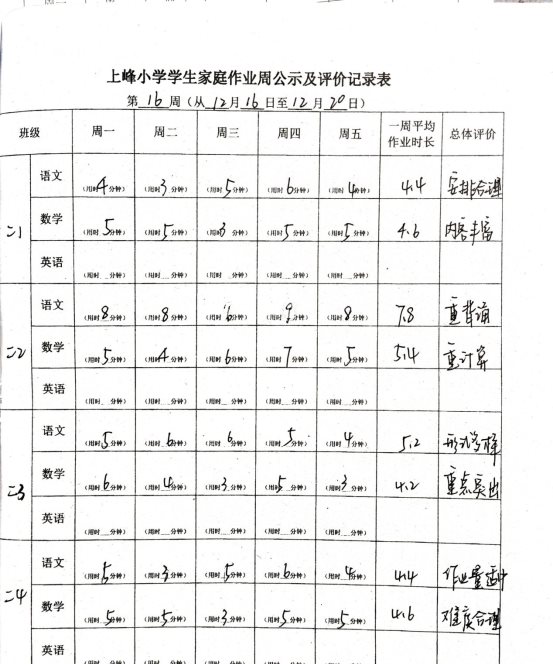 上峰小学学生家庭作业周公示及评价记录表
第 16 周（从 12月 16 日至 12 月 20 日）
班级 周一 周二 周三 周四 周五 一周平均作业时长 总体评价
二1 语文 （用时4分钟） （用时3分钟） （用时5分钟） （用时6分钟） （用时4分钟） 4.4 安排合理
数学 （用时5分钟） （用时5分钟） （用时3分钟） （用时5分钟） （用时5分钟） 4.6 内容丰富
英语 （用时__分钟） （用时__分钟） （用时__分钟） （用时__分钟） （用时__分钟）
二2 语文 （用时8分钟） （用时8分钟） （用时6分钟） （用时9分钟） （用时8分钟） 7.8 重背诵
数学 （用时5分钟） （用时4分钟） （用时6分钟） （用时7分钟） （用时5分钟） 5.4 重计算
英语 （用时__分钟） （用时__分钟） （用时__分钟） （用时__分钟） （用时__分钟）
二3 语文 （用时5分钟） （用时6分钟） （用时6分钟） （用时5分钟） （用时4分钟） 5.2 形式多样
数学 （用时6分钟） （用时4分钟） （用时3分钟） （用时5分钟） （用时3分钟） 4.2 重点突出
英语 （用时__分钟） （用时__分钟） （用时__分钟） （用时__分钟） （用时__分钟）
二4 语文 （用时 分钟） （用时3分钟） （用时5分钟） （用时6分钟） （用时4分钟） 4.4 作业量适中
数学 （用时5分钟） （用时5分钟） （用时3分钟） （用时5分钟） （用时5分钟） 4.6 难度合理
英语 （用时__分钟） （用时__分钟） （用时__分钟） （用时__分钟） （用时__分钟）